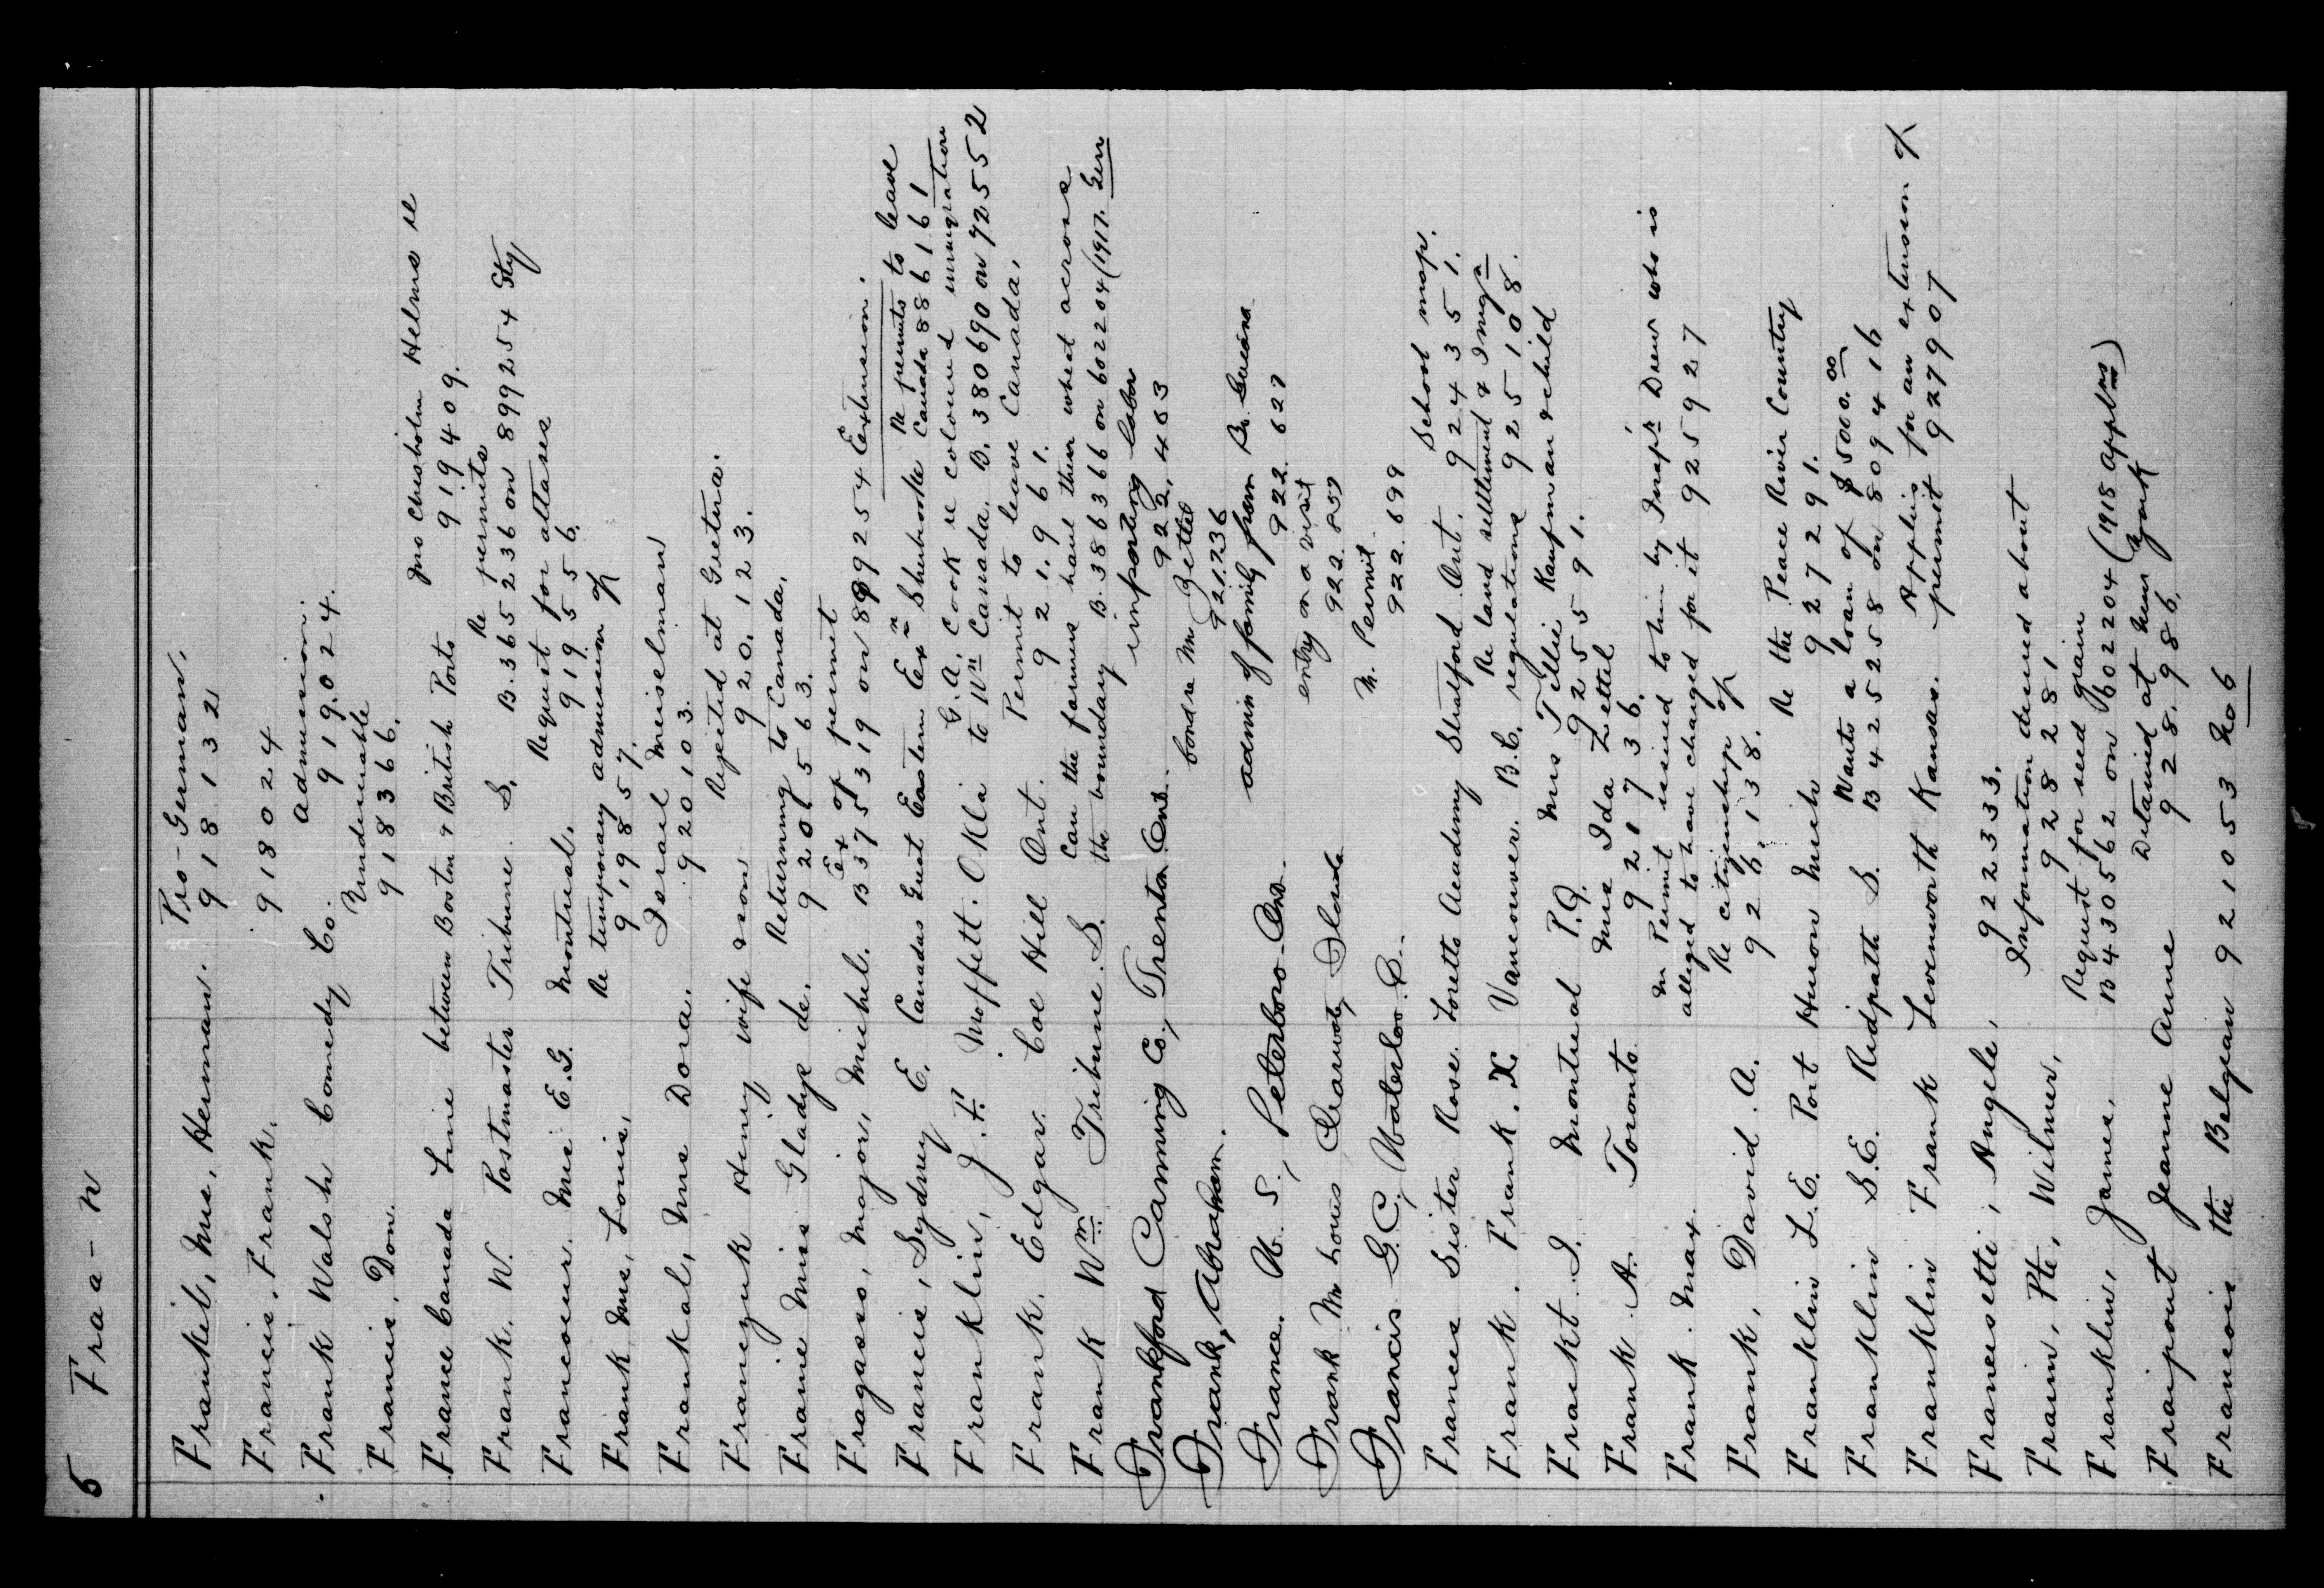 5 Fraa-n
Frankel, Mrs, Herman. Pro-German.
918132
Francis, Frank. 918024
Frank Walsh Comedy Co. admission
919.024.
Francis, Don. Undesirable
918366.
France Canada Line between Boston & British Ports Jno Chisholm Helms re
919409.
Frank. W. Postmaster Tribune S. Re permits
B.365236 on 899254 Sty
Francoeur. Mrs E.G. Montreal. Request for attases
919556.
Frank Mrs, Louis, Re temporary admission of
919857.
Frankal, Mrs Dora. Israel Meiselman
920103.
Franiczuk Henry wife & son Rejected at Gretna.
920.123.
Frame Miss Gladys de. Returning to Canada.
920563.
Fragasso, Major, Michel. Ex of permit
B375319 on 899254 Extension.
Francis, Sydney E. Canadas Great Eastern Exn Sherbrooke Re permits to leave
Canada 886161
Franklin, J.F. Moffett. Okla G.A. Cook re coloured immigration
to Wn Canada. B.380690 on 72552
Frank. Edgar. Coe Hill Ont. Permit to leave Canada.
921.961.
Frank Wm. Tribune. S. Can the farmers haul their wheat across
the boundary B.386366 on 602204 (1917. Gen
Frankford Canning Co, Trenton Ont. importing labor
922,463
Frank, Abraham. bond re Mr Zettel
921736
France. W. S., Peterboro-Ont. admis of family from Br. Guiana
922.627
Frank Mr Louis entry on a visit
922.837
Francis G.C, Waterloo. In. Permit.
922.699
Frances Sister Rose. Loretto Academy Stratford Ont. School map.
924351.
Frank. Frank. X. Vancouver. B.C. Re land settlement & Immgn
regulations 925108.
Frackt. I. Montreal P.Q. Mrs Tillie Kaufman & child
925591.
Frank A. Toronto. Mrs Ida Zettel
921736.
Frank. Max. Permit issued to him by Inspr Dew who is
alleged to have charged for it 925927
Frank, David. A. Re citizenship of
926.138.
Franklin L.E. Port Huron Mich Re the Peace River Country
927291.
Franklin S.E. Ridpath S. Wants a loan of $500.00
B425258 on 809416
Franklin Frank Levenworth Kansas. Applies for an extension of
permit 927907
Francesetti, Angele, 922333.
Frain, Pte, Wilmer, Information desired about
928281
Franklin, James. Request for seed grain
B430562 on 602204 (1918 applns)
Fraipont Jeanne Anne Detained at New York
928.986.
Francois the Belgian 921053 No6